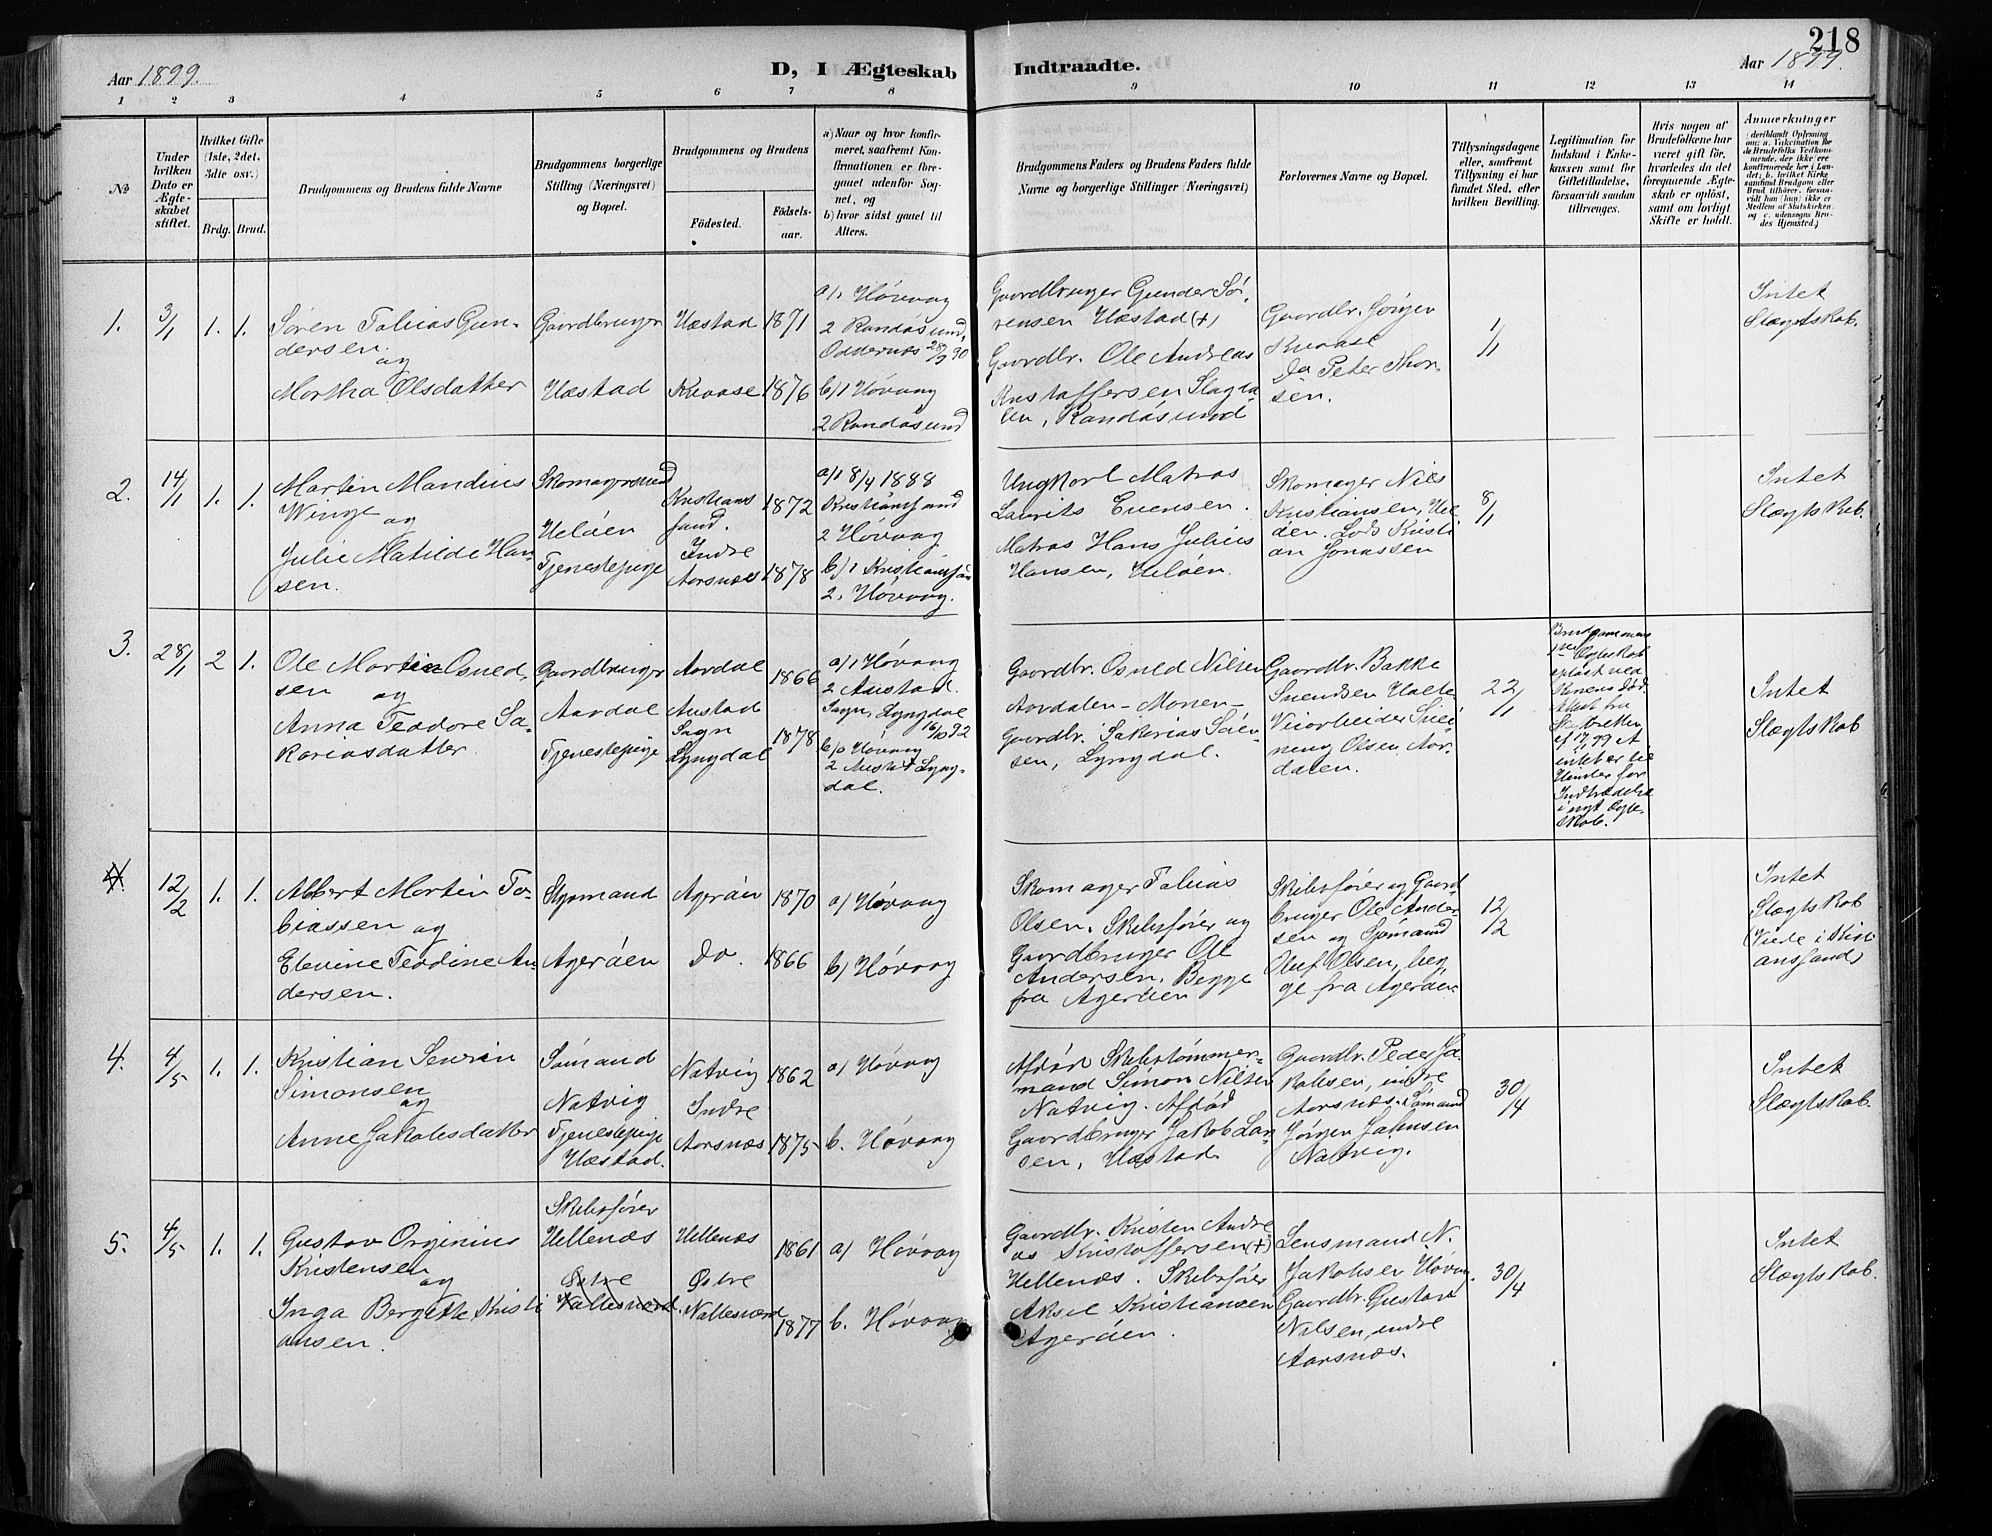 218
Aar 1899.
D, I Ægteskab
Indtraadte.
Aar 1899.
1 2 3 4 5 6 7 8 9 10 11 12 13 14
№
Under hvilken Dato er Ægteskabet stiftet.
Hvilket Gifte (1ste, 2det, 3die osv.)
Brdg. Brud.
Brudgommens og Brudens fulde Navne
Brudgommens borgerlige Stilling (Næringsvei) og Bopæl.
Brudgommens og Brudens
Fødested. Fødselsaar.
a) Naar og hvor konfirmeret, saafremt Konfirmationen er foregaaet udenfor Sognet, og
b) hvor sidst gaaet til Alters.
Brudgommens Faders og Brudens Faders fulde Navne og borgerlige Stillinger (Næringsvei)
Forlovernes Navne og Bopæl.
Tillysningsdagene eller, saafremt Tillysning ei har fundet Sted, efter hvilken Bevilling.
Legitimation for Indskud i Enkekassen samt for Giftetilladelse, forsaavidt saadan tiltrænges.
Hvis nogen af Brudefolkene har været gift før, hvorledes da det foregaaende Ægteskab er opløst, samt om lovligt Skifte er holdt.
Anmerkninger
(deriblandt Oplysning om: a. Vakcination for de Brudefolks Vedkommende, der ikke ere konfirmerede her i Landet; b. hvilket Kirkesamfund Brudgom eller Brud tilhører, forsaavidt han (hun) ikke er Medlem af Statskirken og c. udensogns Brudes Hjemsted.)
1. 3/1 1. 1.
Søren Tobias Gun-
dersen.
og
Martha Olsdatter
Gaardbruger
Hæstad
Hæstad 1871
Kvaase 1876
a/1 Høvaag
2 Randøsund,
Oddernæs 28/9 90
b/1 Høvaag
2 Randøsund
Gaardbruger Gunder Sø-
rensen Hæstad (+)
Gaardbr. Ole Andreas
Kristoffersen
Randøsund
Gaardbr. Jørgen
Kvaase
Do Peter Thor-
sen.
1/1
Intet
Slægtskab.
2. 14/1 1. 1.
Martin Mandius
Winge
og
Julie Matilde Han-
sen.
Skomagersvend
Heløen
Tjenestepige
Kristians
sand. 1872
Indre
Aarsnæs 1878
a/1 8/4 1888
Kristianssand
2 Høvaag
b/1 Kristianssan
2. Høvaag.
Ungkarl Matros
Laurits Evensen.
Matros Hans Julius
Hansen, Heløen.
Skomager Nils
Kristiansen, Hel
øen. Lods Kristi
an Jonassen
8/1
Intet
Slægtskab.
3. 28/1 2 1.
Ole Martin Osued-
sen
og
Anna Teodore Sa-
kariasdatter.
Gaardbruger
Aardal
Tjenestepige
Aardal 1866
Austad
Sogn
Lyngdal 1878
a/1 Høvaag
2 Austad
Sogn, Lyngdal
16/10 92
b/1 Høvaag
2 Austad Lyng-
dal.
Gaardbr. Osued Nilsen
Aardalen - Monen -
Gaardbr. Sakarias Sen-
sen, Lyngdal.
Gaardbr. Bakke
Svendsen Holte
Veiarbeider Svei
nung Olsen Aar-
dalen.
22/1
Brudgommens
1ste Ægteskab
opløst ved
Konens Død
Attest fra
Skifteretten
af 17/1 99 At
intet er til
Hinder for
Indtrædelse
i nyt Ægte-
skab.
Intet
Slægtskab
4. 12/2 1. 1.
Albert Martin To-
biassen og
Elevine Teodine An
dersen.
Styrmand
Agerøen
Agerøen 1870
Do. 1866
a) Høvaag
b) Høvaag
Skomager Tobias
Olsen. Skibsfører og
Gaardbruger Ole
Andersen, Begge
fra Agerøen
Skibsfører og Gaard-
bruger Ole Ander-
sen og Sjømand
Oluf Olsen, beg
ge fra Agerøen
12/2
Intet
Slægtskab
(Viede i Kristi
anssand)
4. 4/5 1. 1.
Kristian Severin
Simonsen
og
Anne Jakobsdatter
Sømand
Natvig
Tjenestepige
Hæstad.
Natvig 1862
Indre
Aarsnæs 1875
a) Høvaag
b. Høvaag
Afdød Skibstømmer-
mand Simon Nilsen
Natvig. Afdød
Gaardbruger Jakob Lar-
sen, Hæstad
Gaardbr. Peder Ja-
kobsen, indre
Aarsnæs. Sømand
Jørgen Jakobsen
Natvig.
30/4
Intet
Slægtskab.
5. 4/5 1. 1.
Gustav Orginius
Kristensen
og
Inga Bergitte Kristi
ansen.
Skibsfører
Hellenæs
Østre
Vallesværd.
Hellenæs 1861
Østre
Vallesværd 1877
a) Høvaag
b. Høvaag
Gaardbr. Kristen Andre
as Kristoffersen (+)
Hellenæs. Skibsfører
Aksel Kristiansen
Agerøen.
Lensmand N.
Jakobsen Høvaag.
Gaardbr. Gustav
Nilsen, indre
Aarsnæs.
30/4
Intet
Slægtskab.